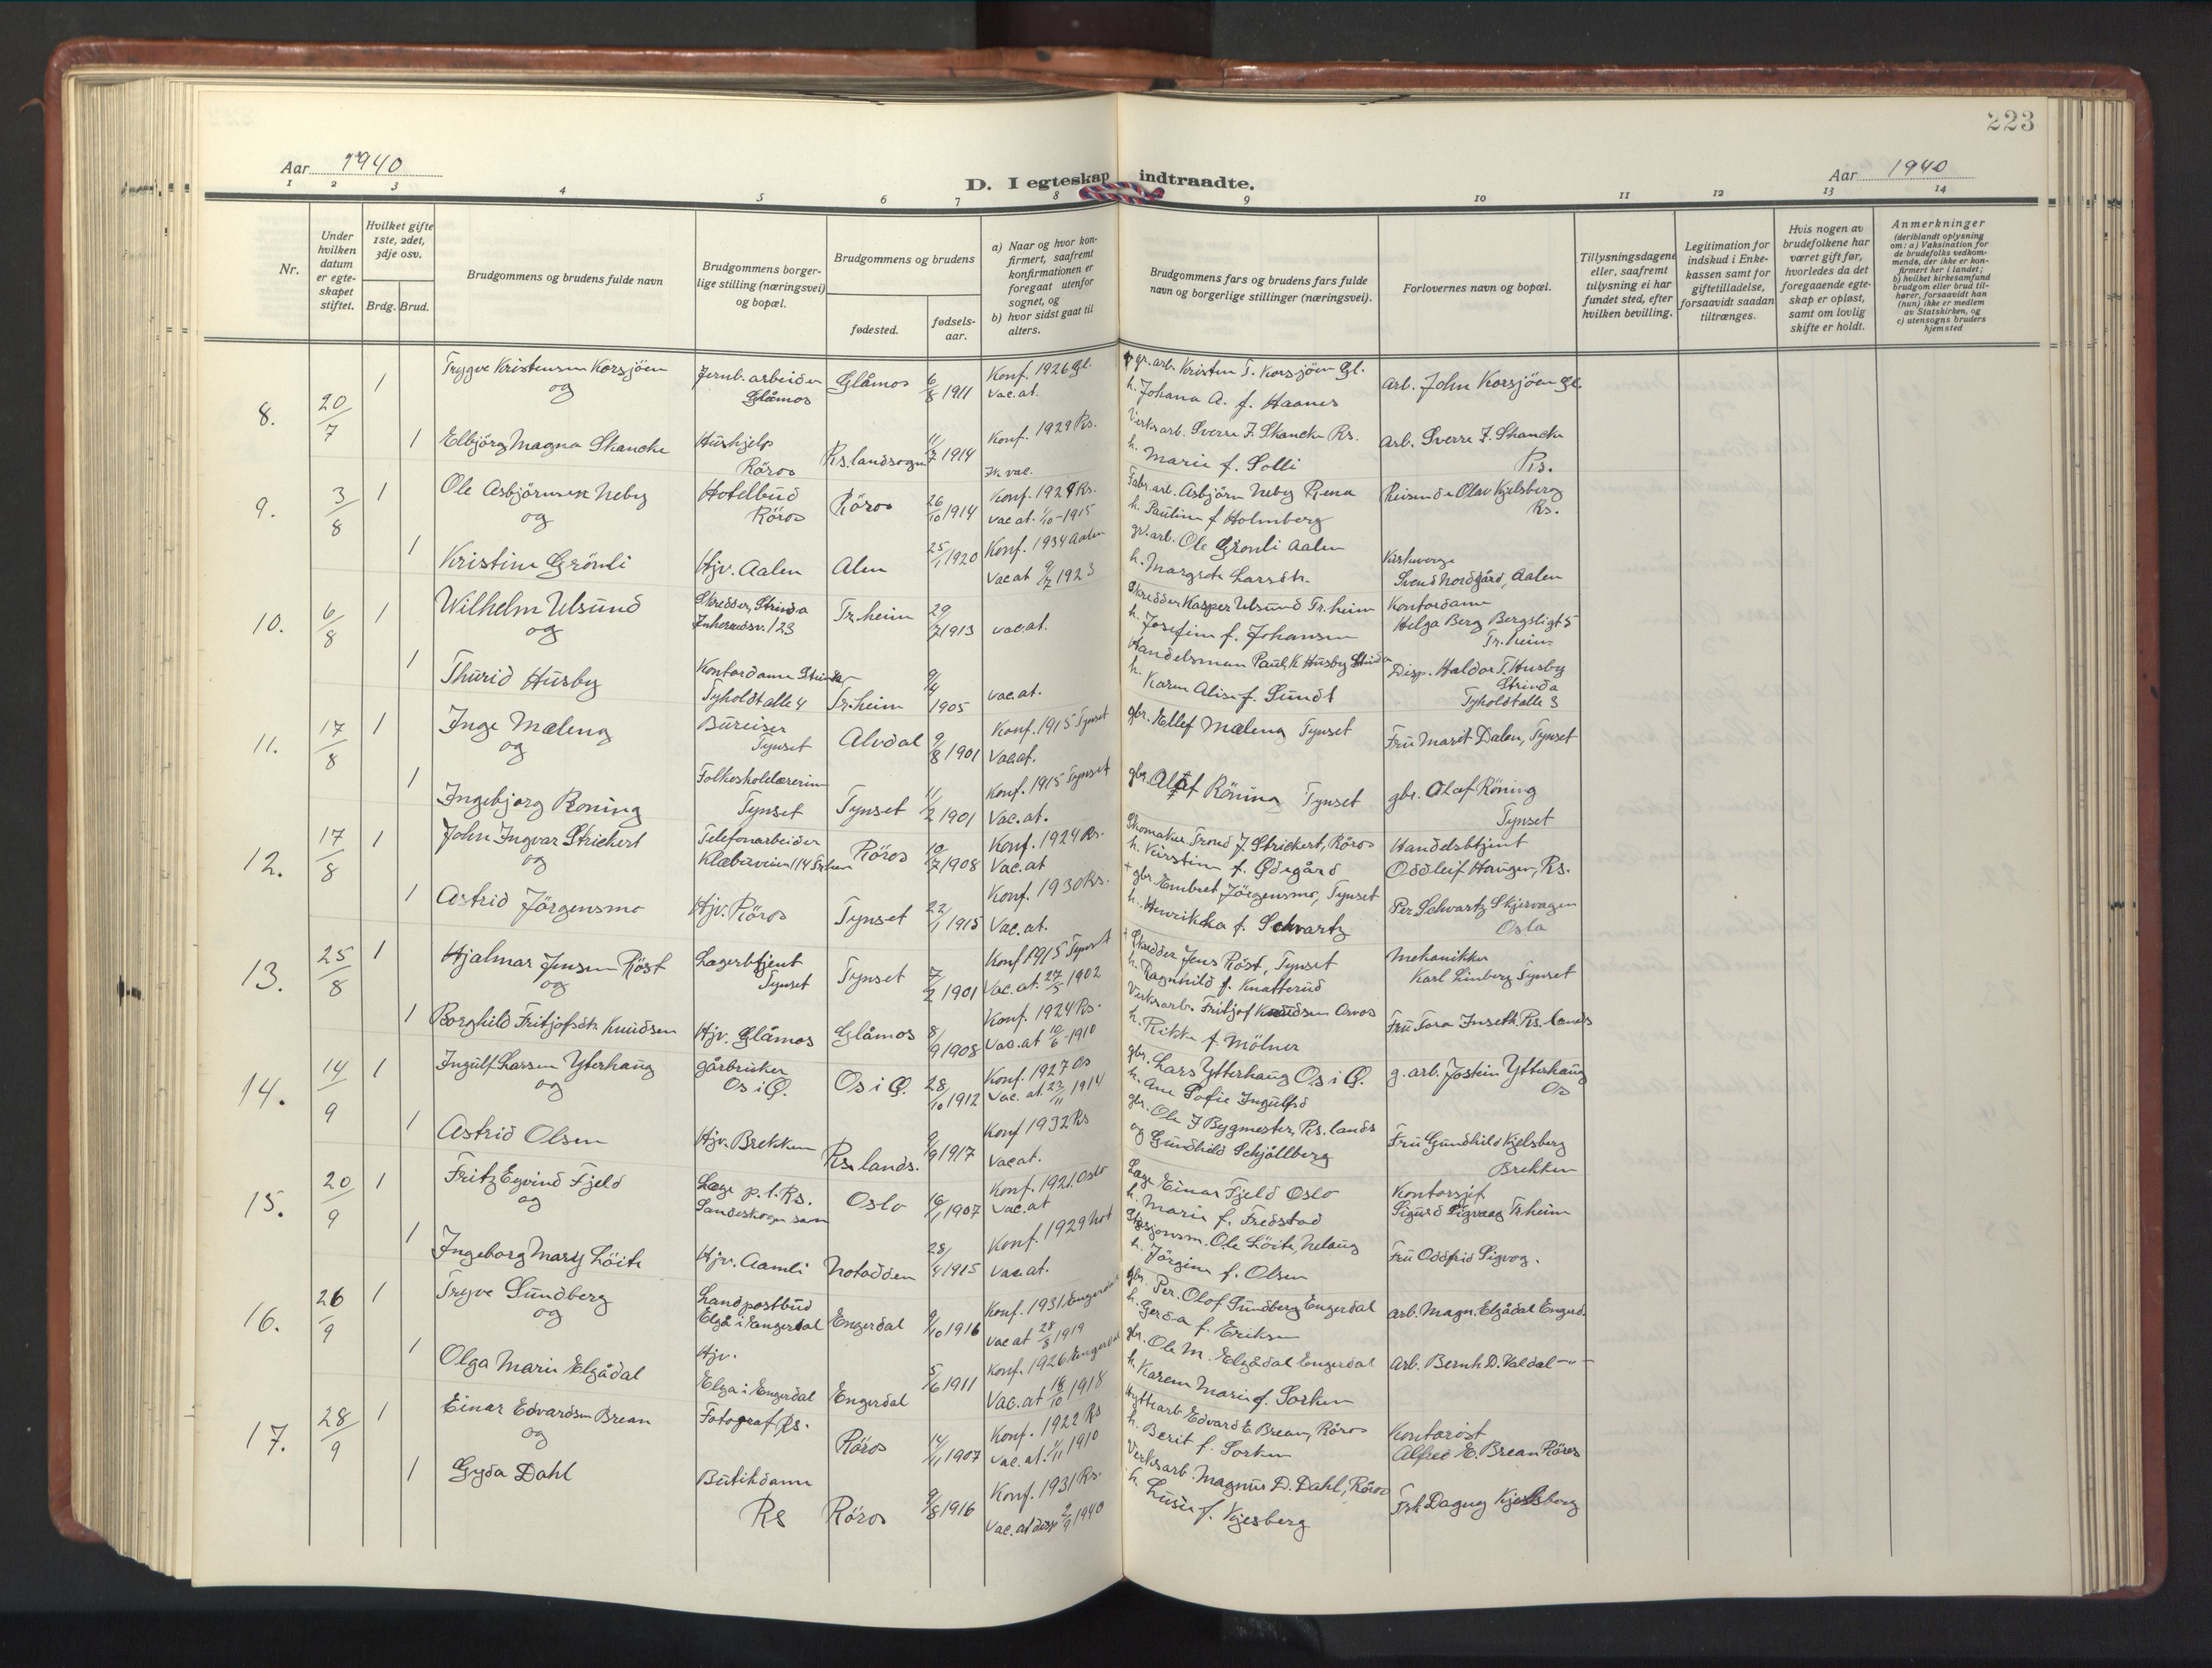 223
Aar 1940
D. I egteskap indtraadte.
Aar 1940
1 2 3 4 5 6 7 8 9 10 11 12 13 14
Nr.
Under hvilken datum er egteskapet stiftet.
Hvilket gifte 1ste, 2det, 3dje osv.
Brdg. Brud.
Brudgommens og brudens fulde navn
Brudgommens borgerlige stilling (næringsvei) og bopæl.
Brudgommens og brudens
fødested.
fødselsaar.
a) Naar og hvor konfirmert, saafremt konfirmationen er foregaat utenfor sognet, og
b) hvor sidst gaat til alters.
Brudgommens fars og brudens fars fulde navn og borgerlige stillinger (næringsvei).
Forlovernes navn og bopæl.
Tillysningsdagene eller, saafremt tillysning ei har fundet sted, efter hvilken bevilling.
Legitimation for indskud i Enkekassen samt for giftetilladelse, forsaavidt saadan tiltrænges.
Hvis nogen av brudefolkene har været gift før, hvorledes da det foregaaende egteskap er opløst, samt om lovlig skifte er holdt.
Anmerkninger
(deriblandt oplysning om: a) Vaksination for de brudefolks vedkommende, der ikke er konfirmert her i landet; b) hvilket kirkesamfund brudgom eller brud tilhører, forsaavidt han (hun) ikke er medlem av Statskirken, og c) utensogns bruders hjemsted
8. 20/7 1 Trygve Kristensen Korsjöen og
Jernb. arbeider Glåmos
Glåmos 6/8 1911
Konf. 1926 Gl. Vac. at.
gr. arb. Kristen T. Korsjöen Gl.
h. Johana A. f. Haanes
arb. John Korsjöen Gl.
1 Elbjörg Magna Skancke
Hushjelp Röros
Rs. landsogn 11/7 1914
Konf. 1929 Rs.
Verksarb. Sverre J. Skancke Rs.
h. Marie f. Solli
arb. Sverre J. Skancke Rs.
9. 3/8 1 Ole Asbjörnsen Neby og
Hotelbud Röros
Röros 26/10 1914
Konf. 1929 Rs. vac at. 1/10-1915
Fabr. arb. Asbjörn Neby Rena
h. Pauline f. Holmberg
Reisende Olav Kjelsberg Rs.
1 Kristine Grönli
Hjv. Aalen
Alen 25/1 1920
Konf. 1934 Aalen
Vac at 9/7 1923
gr. arb. Ole Grönli Aalen
h. Margrete Larsdtr.
Kirkeverge Svend Nordgård, Aalen
10. 6/8 1 Wilhelm Ulsund og
Skredder, Strinda Inherredsv. 123
Tr.heim 29/7 1913
vac. at.
Skredder Kasper Ulsund Tr.heim
h. Josefine f. Johansen
Kontordame Helga Berg Bergsligt 5 Tr.heim
1 Thurid Husby
Kontordame Strinda Tyholdt alle 4
Tr.heim 9/4 1905
vac. at.
Handelsman Paul K Husby Strinda
h. Karen Alise f. Sundt
Disp. Haldor T. Husby Strinda Tyholdtalle 3
11. 17/8 1 Inge Mæleng og
Bureiser Tynset
Alvdal 9/8 1901
Konf. 1915 Tynset Vac at.
gbr. Ellef Mæleng Tynset
Fru Marit Dalen, Tynset
1 Ingebjorg Roning
Folkeskolelærerinne Tynset
Tynset 11/2 1901
Konf. 1915 Tynset Vac. at.
gbr. Olaf Röning Tynset
gbr. Olaf Röning Tynset
12. 17/8 1 John Ingvar Strickert og
Telefonarbeider Klæbuveien 114 Tr.heim
Röros 10/7 1908
Konf. 1924 Rs. Vac. at
Skomaker Trond J. Strickert, Röros
h. Kirstine f. Ødegård
Handelsbtjent Oddleif Haugen, Rs.
1 Astrid Jörgensmo
Hjv. Röros
Tynset 22/1 1915
Konf. 1930 Rs. Vac. at.
+ gbr Embret Jörgensmo, Tynset
h. Henrikka f. Schvartz
Per Schvartz Skjervagen Oslo
13. 25/8 1 Hjalmar Jensen Röst og
Lagerbtjent Tynset
Tynset 7/2 1901
Konf 1915 Tynset Vac. at. 27/5 1902
+ Skredder Jens Röst, Tynset
h. Ragnhild f. Knatterud
Mekanikker Karl Limberg Tynset
1 Borghild Fritjofsdtr Knudsen
Hjv. Glåmos
Glåmos 8/9 1908
Konf. 1924 Rs. Vac. at 10/6-1910
Verksarb. Fritjof Knudsen Orvos
h. Rikke f. Mölner
Fru Tora Inseth, Rs. lands
14. 14/9 1 Ingulf Larsen Ytterhaug og
gårbruker Os i Ø.
Os i Ø. 28/10 1912
Konf. 1927 Os Vac. at. 23/11 1914
gbr. Lars Ytterhaug Os i Ø.
h. Ane Sofie Ingulfsd
g. arb. Jostein Ytterhaug Os
1 Astrid Olsen
Hjv. Brekken
Rs. lands. 9/9 1917
Konf 1932 Rs Vac at.
gbr. Ole J Bygmester, Rs. lands
og Gundhild Schjöllberg
Fru Gundhild Kjelsberg Brekken
15. 20/9 1 Fritz Eyvind Fjeld og
Læge p. t. Rs. Sandeskogen san
Oslo 16/1 1907
Konf. 1921. Oslo Vac. at
Læge Einar Fjeld Oslo
h. Marie f. Fredstad
Kontorsjef Sigurd Sigvaag Tr.heim
1 Ingeborg Mary Löite
Hjv. Aamli
Notodden 28/4 1915
Konf. 1929 Not Vac at.
Stasjonsm. Ole Löite, Nelaug
h. Jörgine f. Olsen
Fru Oddfrid Sigvog.
16. 26/9 1 Tryve Sundberg og
Landpostbud Elgå i Engerdal
Engerdal 9/10 1916
Konf. 1931. Engerdal vac at 28/8 1919
gbr. Per. Olof Sundberg Engerdal
h. Gerda f. Eriksen
arb. Magn. Elgådal Engerd.
1 Olga Marie Elgådal
Hjv. Elga i Engerdal
Engerdal 5/6 1911
Konf. 1926 Engerdal Vac. at 18/10 1918
gbr. Ole M. Elgådal Engerdal
h. Karen Marie f. Sorken
arb. Bernh D. Valdal -"-
17. 28/9 1 Einar Edvardsen Brean og
Fotograf Rs.
Röros 14/11 1907
Konf. 1922 Rs Vac. at. 1/11 1910
Hyttearb Edvard E Brean, Röros
h. Berit f. Sorken
Kontorist Alfred E. Brean Röros
1 Gyda Dahl
Butikdame Rs
Röros 9/8 1916
Konf. 1931 Rs. Vac. at disp 2/9 1940
Verksarb. Magnus D. Dahl, Röros
h. Lusie f. Kjesberg
Frk Dagny Kjelsberg